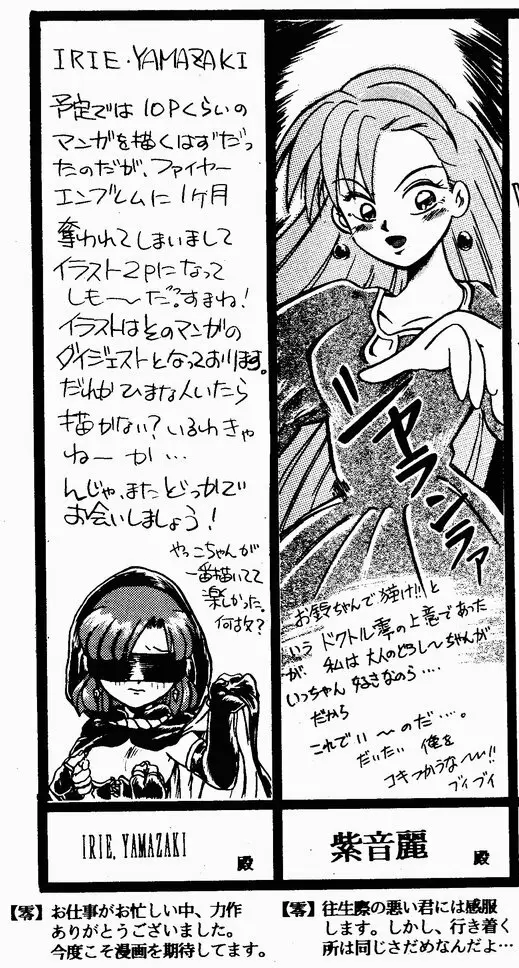 IRIE・YAMAZAKI
予定では10Pくらいの
マンガを描くはずだっ
たのだが、ファイヤー
エンブレムに1ヶ月
奪われてしまいまして
イラスト2Pになって
しも〜〜だ?すまね!
イラストはそのマンガの
ダイジェストとなっております。
だれか ひまな人いたら
描かない?いるわきゃ
ねーか…
んじゃ、またどっかで
お会いしましょう!
やっこちゃんが
一番描いてて
楽しかった。
何故?
IRIE, YAMAZAKI
殿
【零】お仕事がお忙しい中、力作
ありがとうございました。
今度こそ漫画を期待してます。
ジャランラァ
お鈴ちゃんで強け!!と
いう ドクトル零の上意であった
が、私は大人のどろし〜ちゃんが
いっちゃん 好きなのら・・・・
だから
これでい〜のだ・・・。
だいたい 俺を
コキつかうな〜〜!!
ブイブイ
紫音麗
殿
【零】往生際の悪い君には感服
します。しかし、行き着く
所は同じさだめなんだよ…